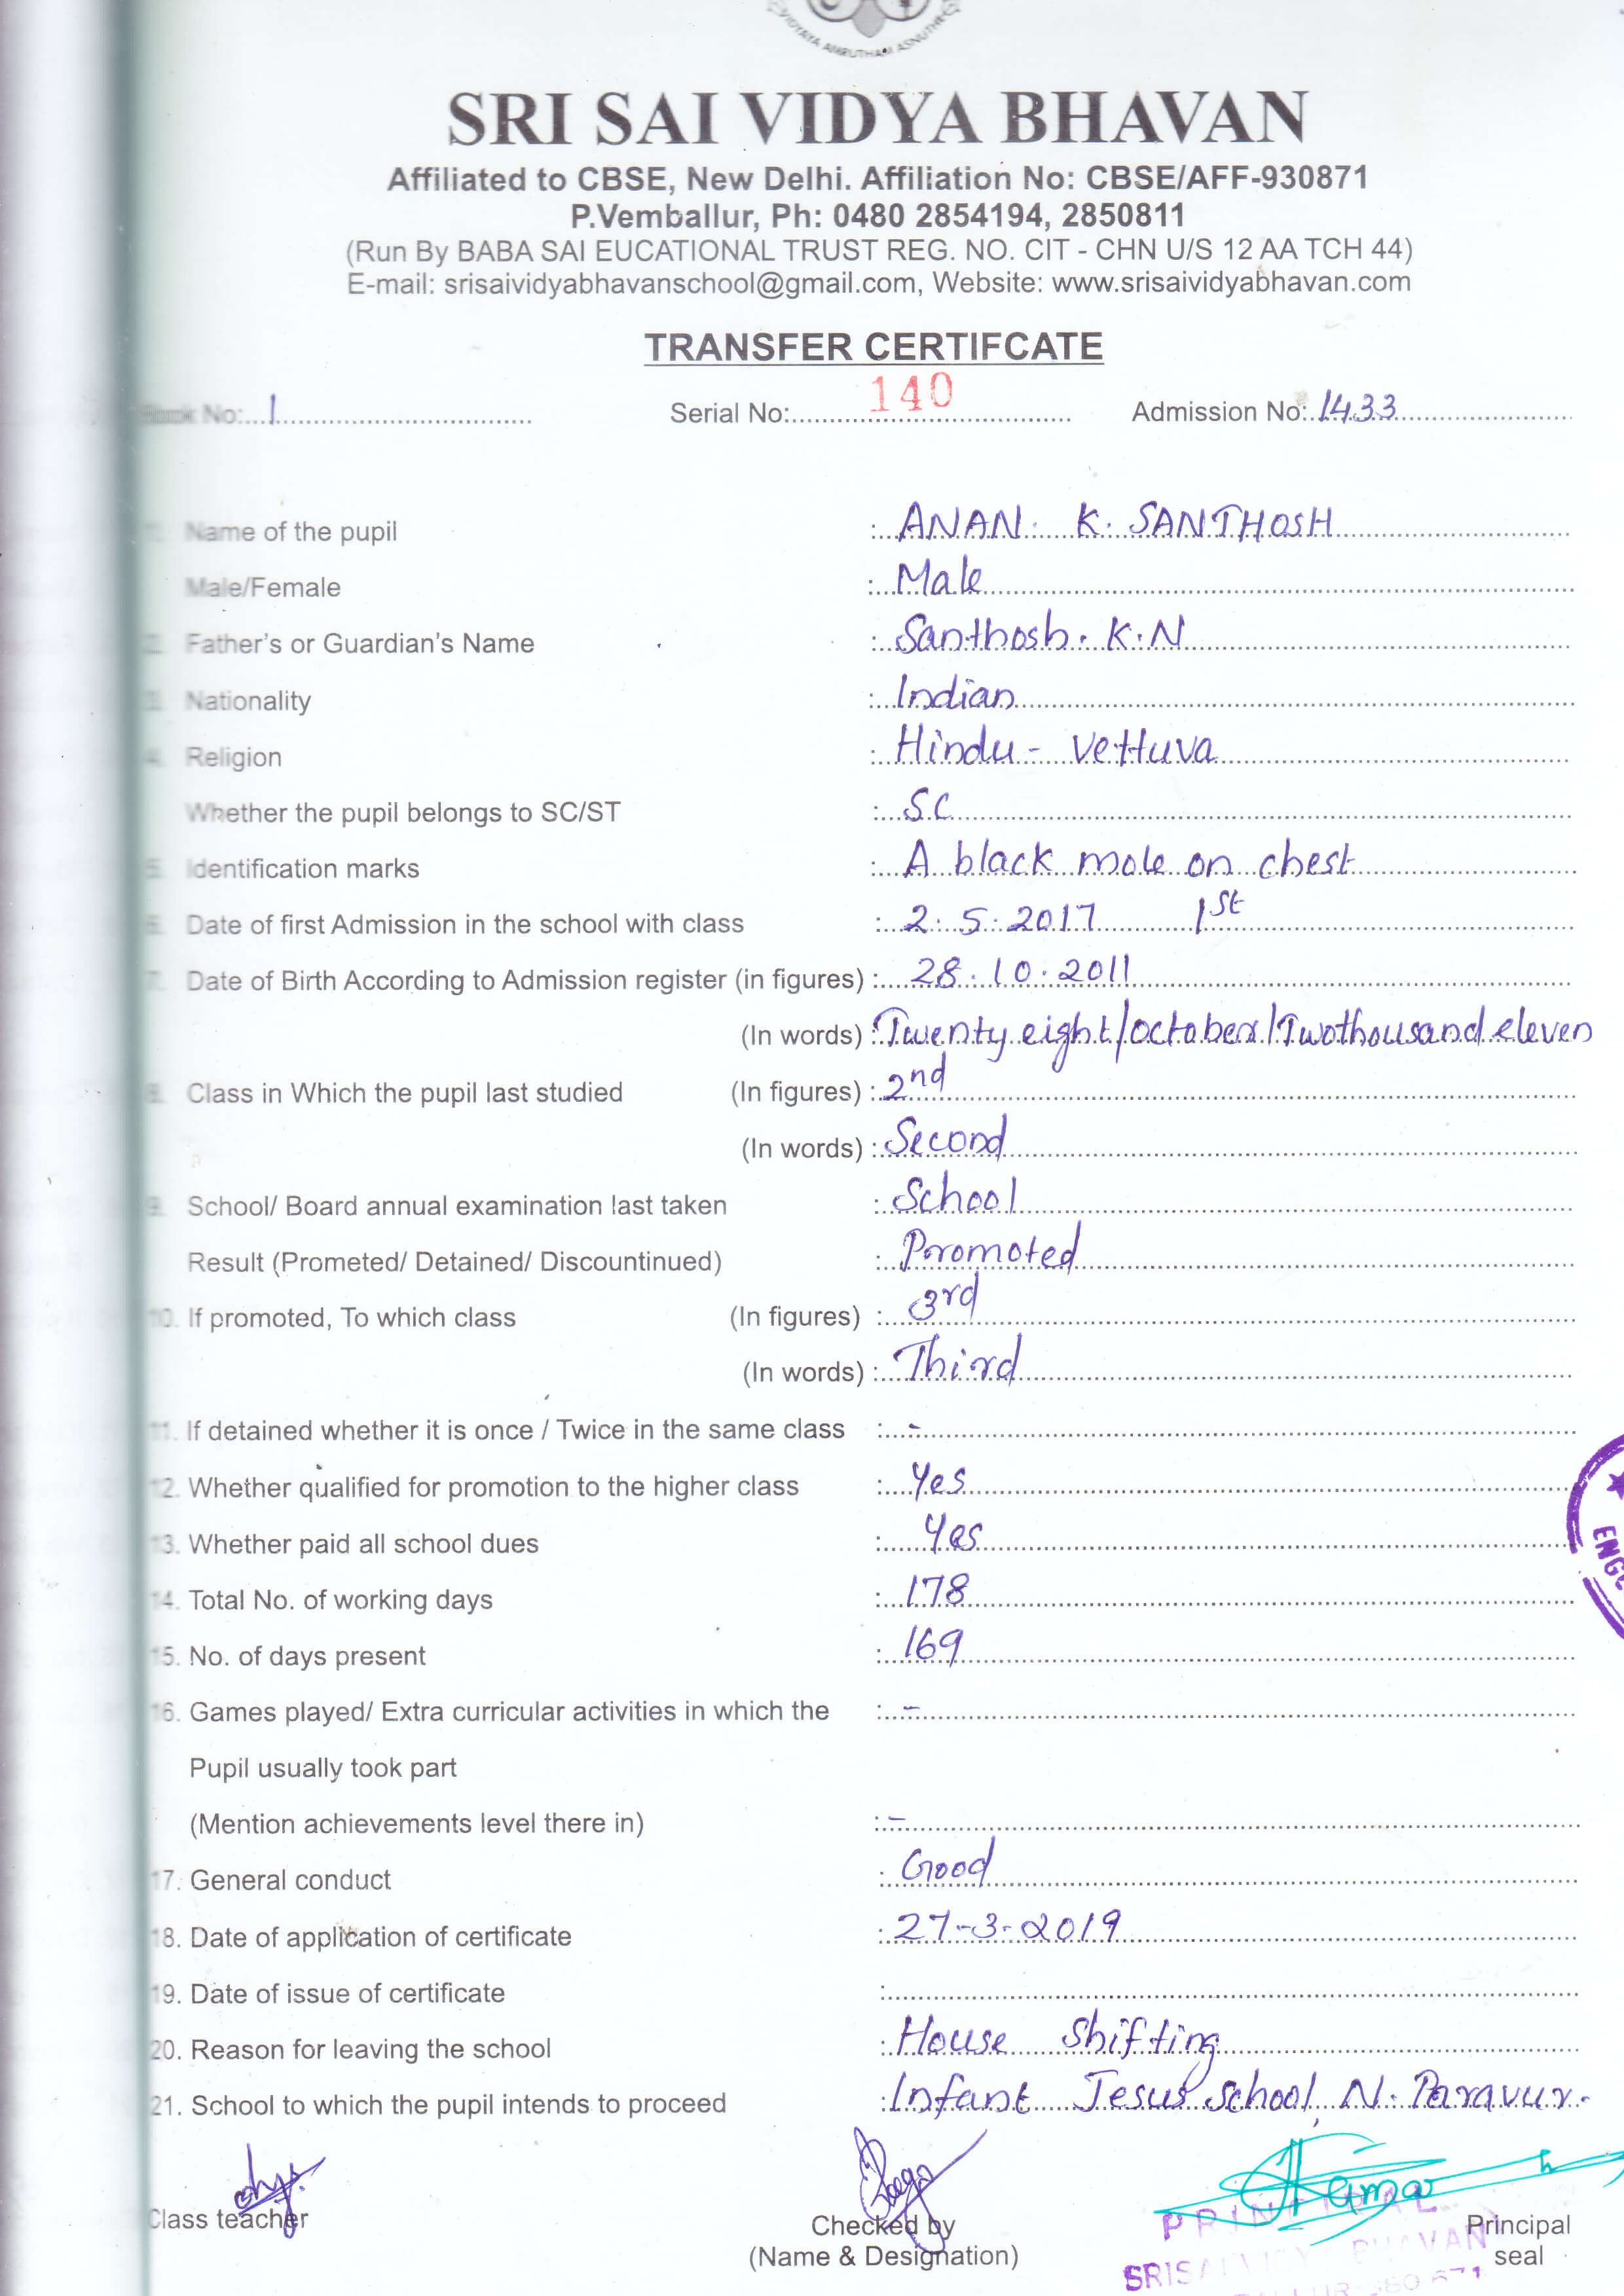 VIDYAYA AMRUTHAM ASNUTHE
SRI SAI VIDYA BHAVAN
Affiliated to CBSE, New Delhi. Affiliation No: CBSE/AFF-930871
P.Vemballur, Ph: 0480 2854194, 2850811
(Run By BABA SAI EUCATIONAL TRUST REG. NO. CIT - CHN U/S 12 AA TCH 44)
E-mail: srisaividyabhavanschool@gmail.com, Website: www.srisaividyabhavan.com
TRANSFER CERTIFCATE
Book No: 1 Serial No: 140 Admission No: 1433
1. Name of the pupil : ANAN. K. SANTHOSH
Male/Female : Male
2. Father's or Guardian's Name : Santhosh. K.N
3. Nationality : Indian
4. Religion : Hindu - Vettuva
Whether the pupil belongs to SC/ST : SC
5. Identification marks : A black mole on chest
6. Date of first Admission in the school with class : 2.5.2017 1st
7. Date of Birth According to Admission register (in figures) : 28.10.2011
(In words) : Twenty eight/october/Twothousand eleven
8. Class in Which the pupil last studied (In figures) : 2nd
(In words) : Second
9. School/ Board annual examination last taken : School
Result (Prometed/ Detained/ Discountinued) : Promoted
10. If promoted, To which class (In figures) : 3rd
(In words) : Third
11. If detained whether it is once / Twice in the same class : -
12. Whether qualified for promotion to the higher class : Yes
13. Whether paid all school dues : Yes
14. Total No. of working days : 178
15. No. of days present : 169
16. Games played/ Extra curricular activities in which the : -
Pupil usually took part
(Mention achievements level there in) : -
17. General conduct : Good
18. Date of application of certificate : 27-3-2019
19. Date of issue of certificate :
20. Reason for leaving the school : House shifting
21. School to which the pupil intends to proceed : Infant Jesus school, N. Paravur.
Class teacher
Checked by
(Name & Designation)
Principal
seal
PRINCIPAL
SRI SAI VIDYA BHAVAN